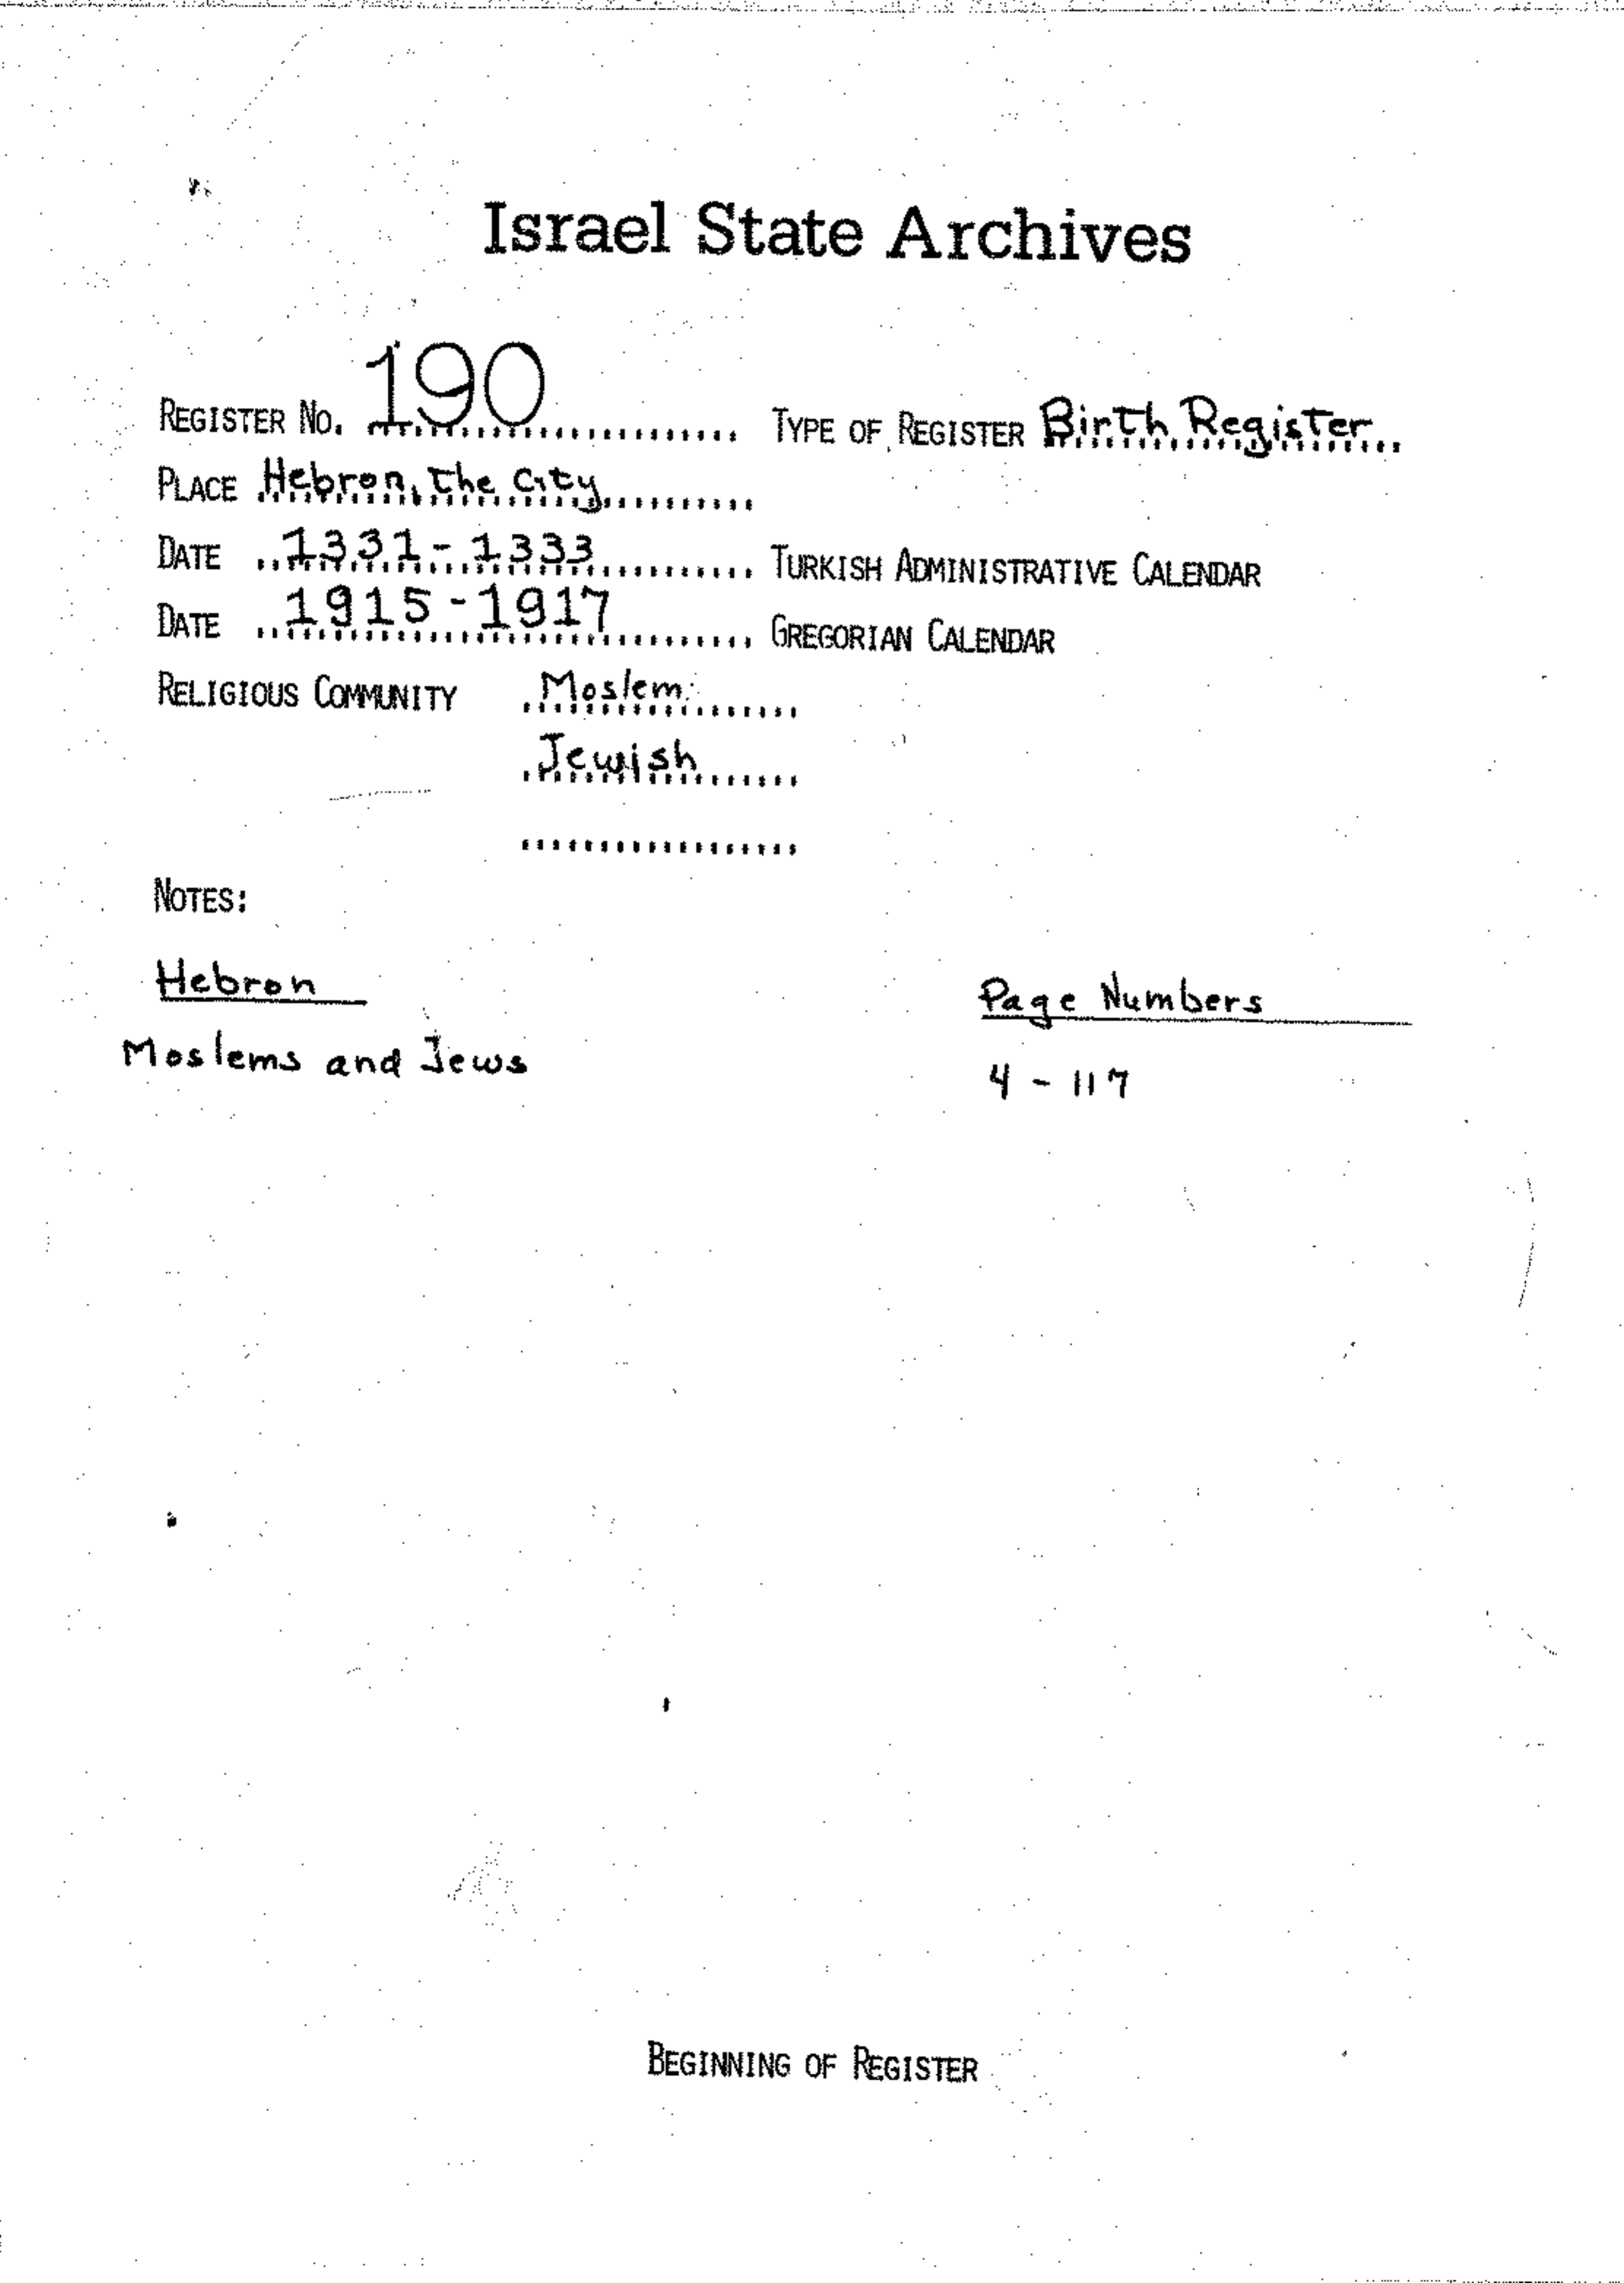 Israel State Archives
REGISTER NO. 190 TYPE OF REGISTER Birth Register
PLACE Hebron, the City
DATE 1331-1333 TURKISH ADMINISTRATIVE CALENDAR
DATE 1915-1917 GREGORIAN CALENDAR
RELIGIOUS COMMUNITY Moslem
Jewish
NOTES:
Hebron Page Numbers
Moslems and Jews 4 - 117
BEGINNING OF REGISTER